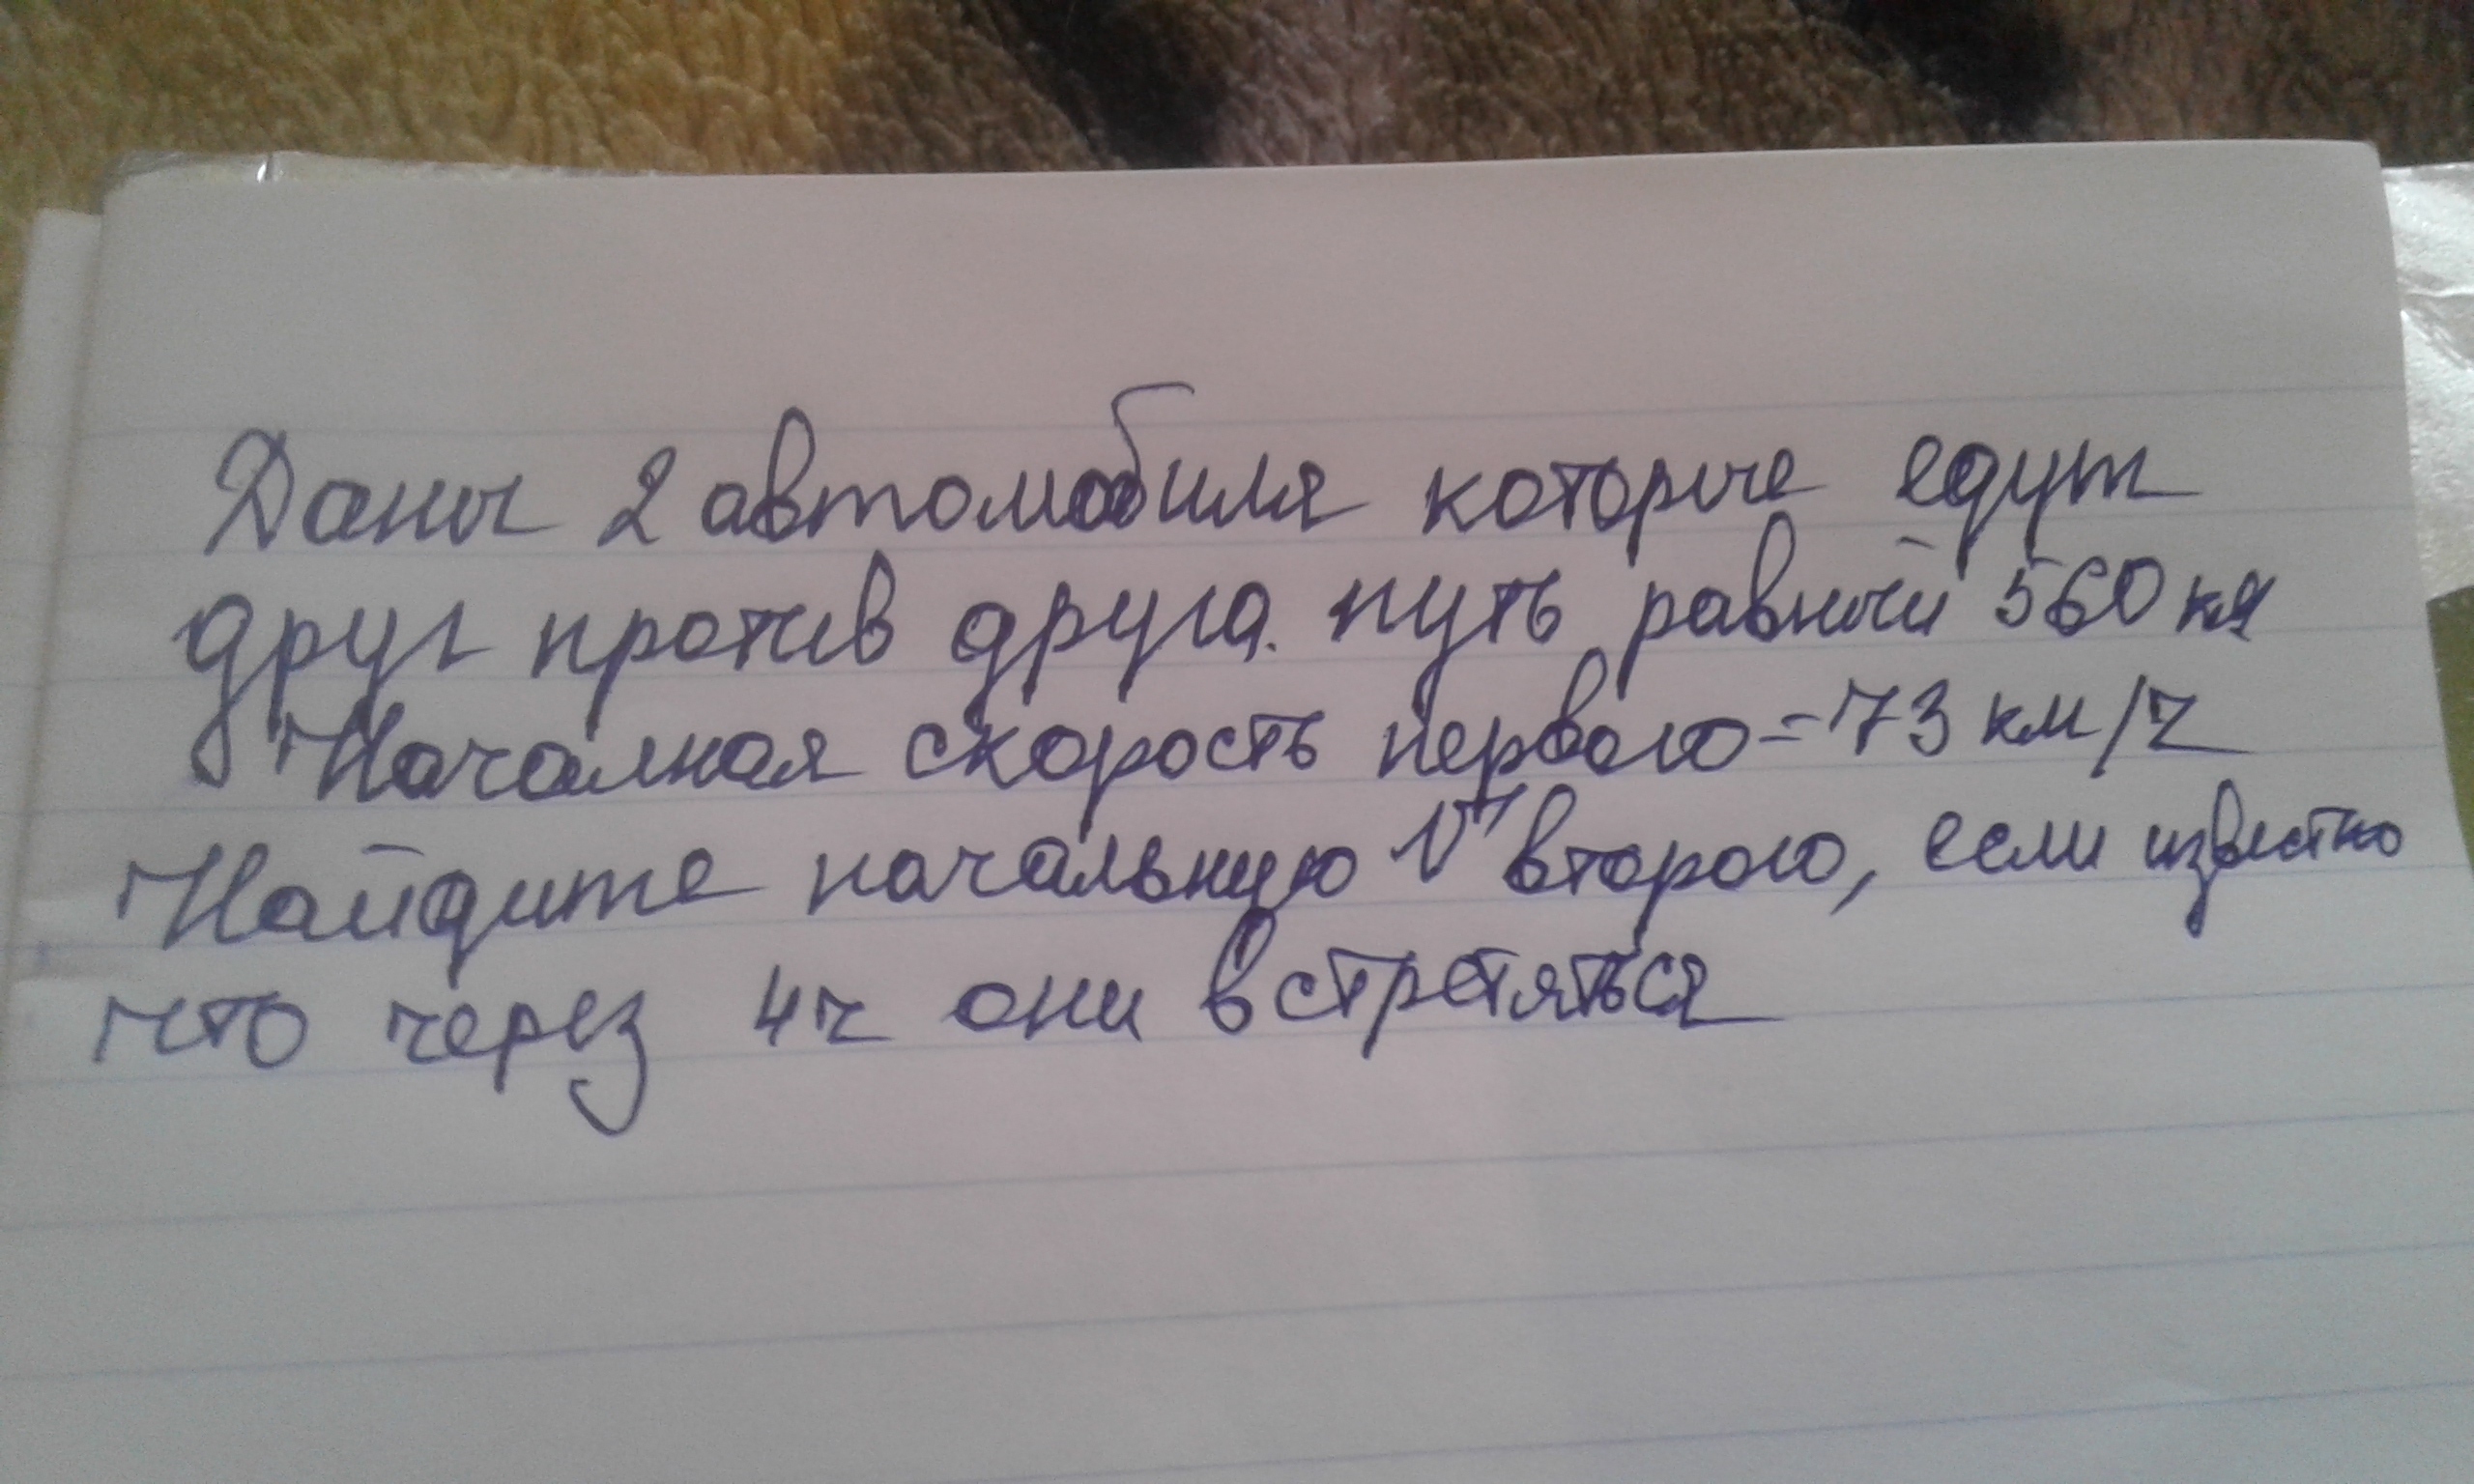 Даны 2 автомобиля которые едут
друг против друга. путь равный 560 км
Началная скорость первого = 73 км/ч
Найдите начальную V второго, если известно
что через 4ч они встретяться